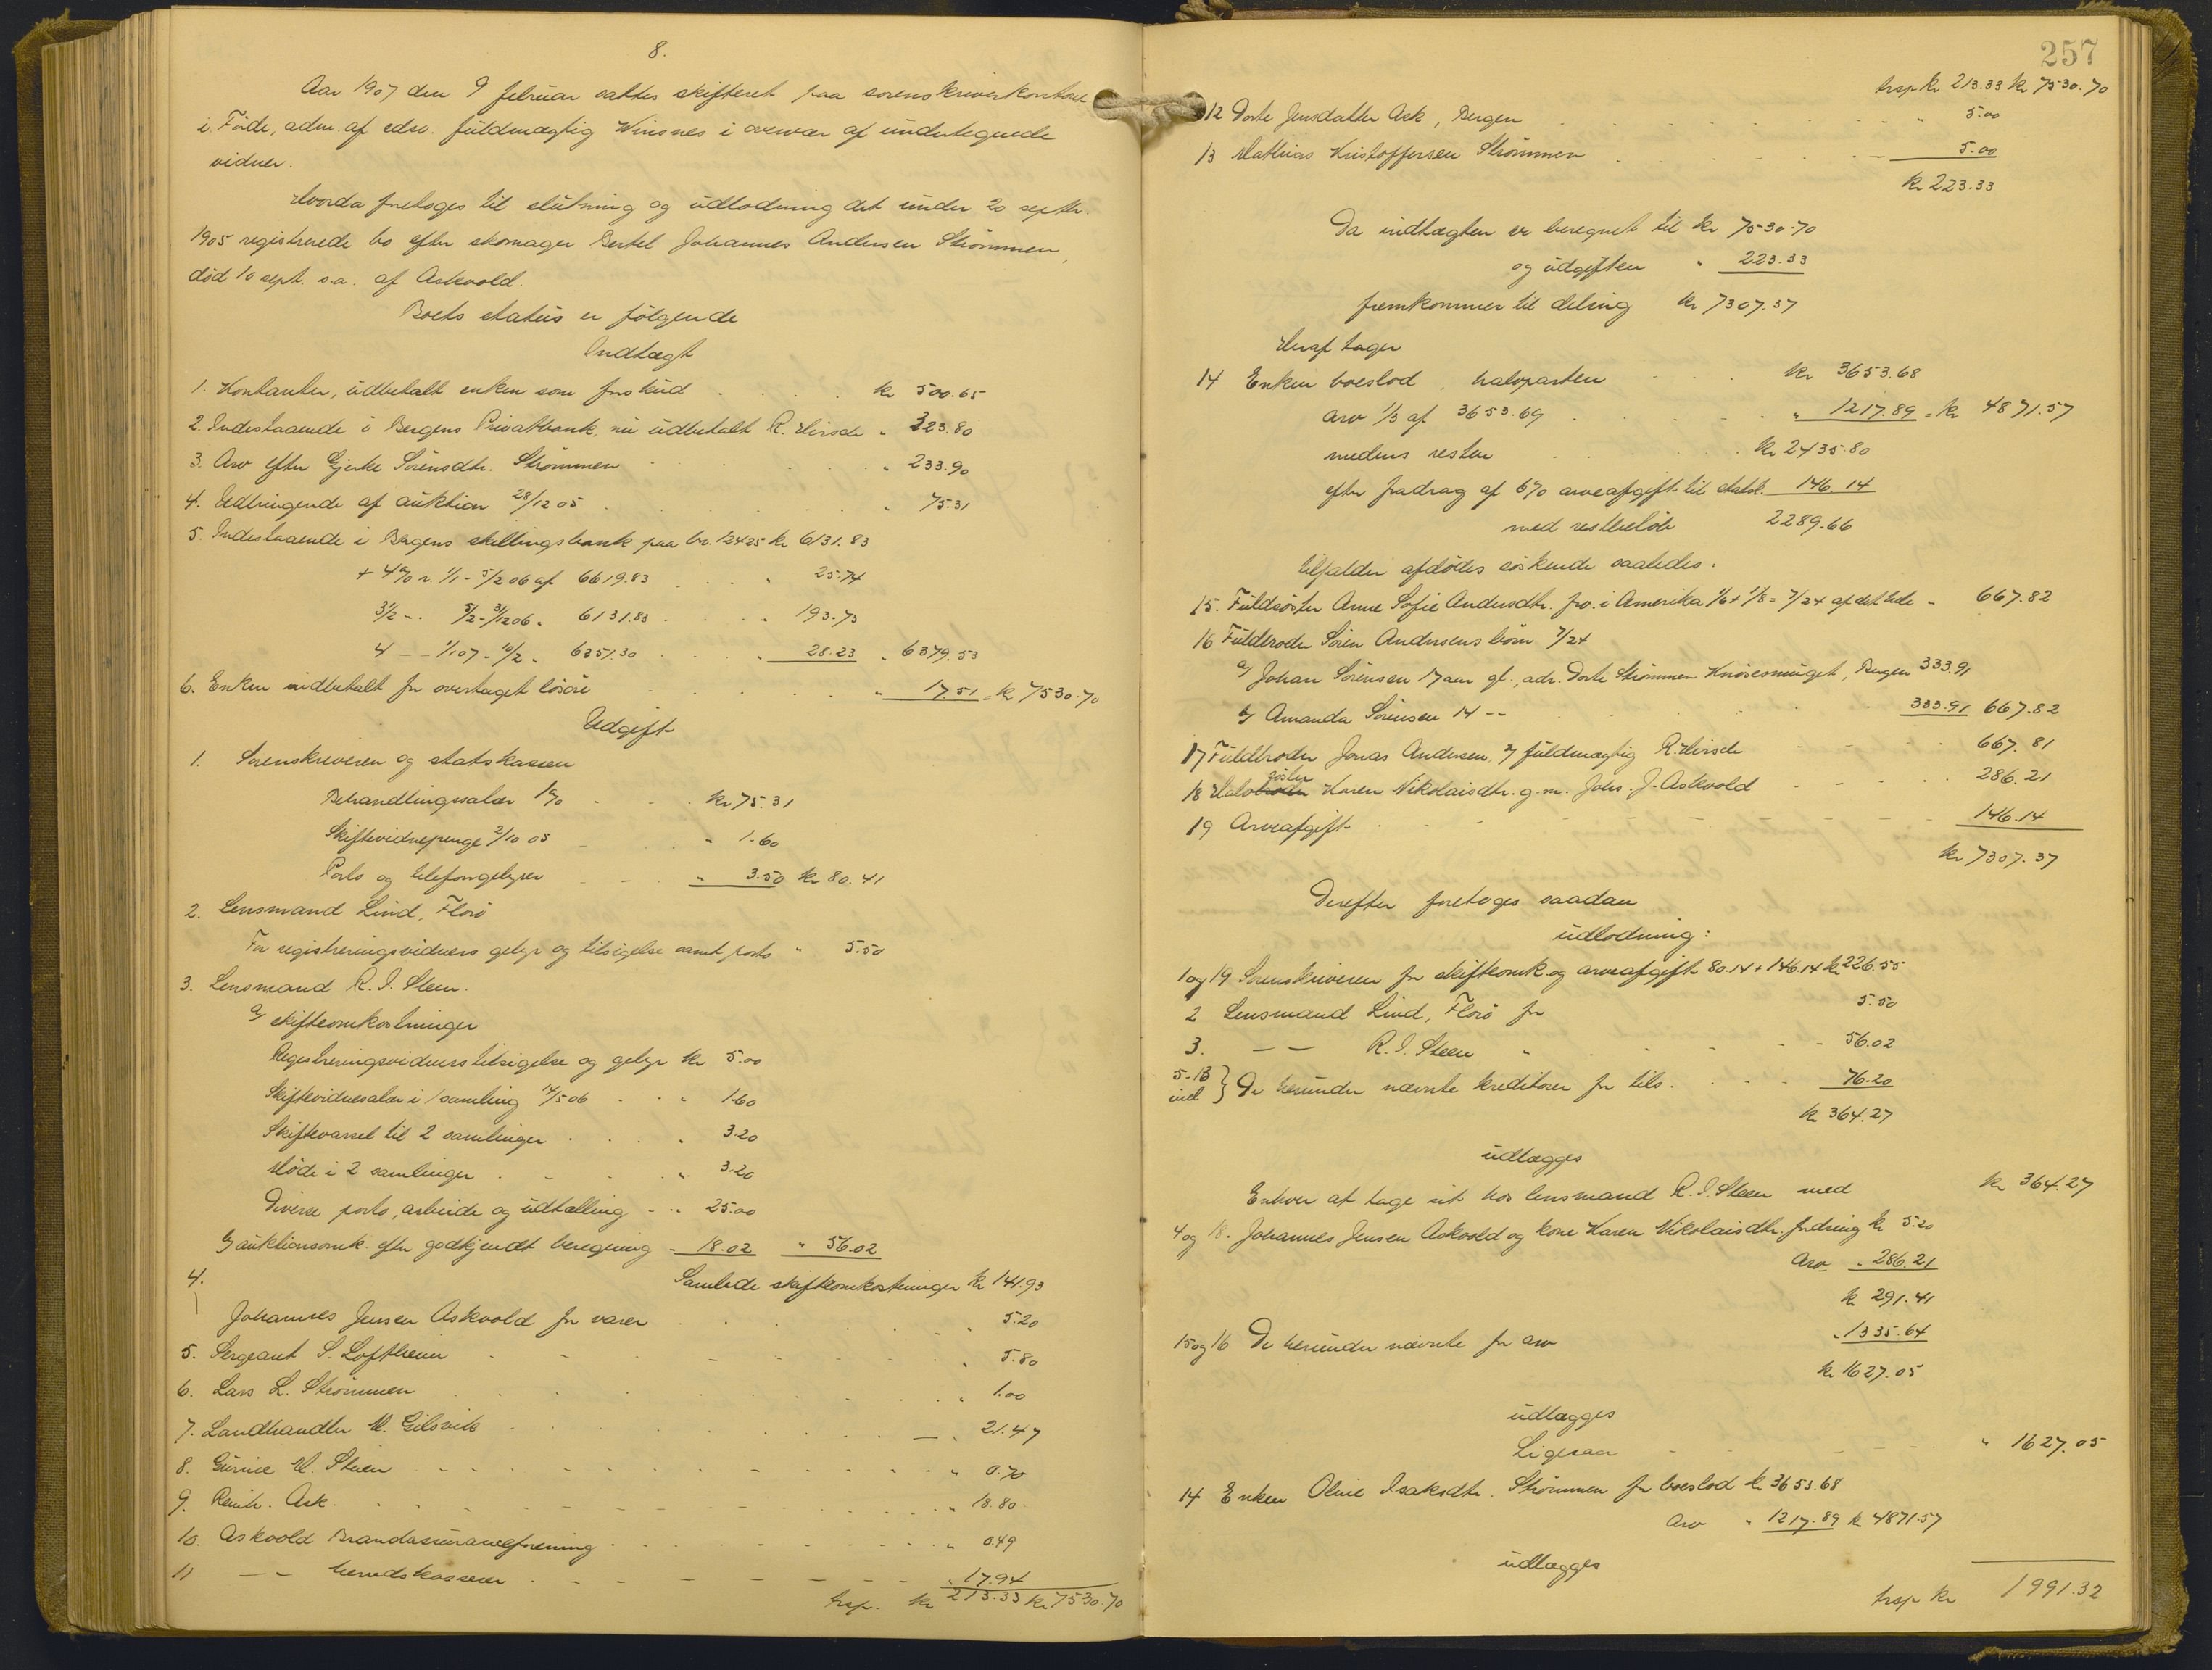 8.
Aar 1907 den 9 februar sattes skifteret paa sorenskriverkontoret
i Förde, adm. af edsv. fuldmægtig Winsnes i overvær af undertegnede
vidner.
Hvorda foretoges til slutning og udlodning det under 20 septbr.
1905 registrerede bo efter skomager Bertel Johannes Andersen Strömmen,
död 10 sept. s.a. af Askvold.
Boets status er fölgende
Indtægt
1. Kontanter, udbetalt enken som forskud . . . . kr 500.65
2. Indestaaende i Bergens Privatbank, nu udbetalt R. Hirsch " 323.80
3. Arv efter Gjerke Sörensdtr. Strömmen . . . . " 233.90
4. Udbringende af auktion 28/12 05 . . . . " 75.31
5. Indestaaende i Bergens skillingsbank paa bo. 12425 kr 6131.83
+ 4% r. 1/1 - 5/2 06 af 6619.83 . . . " 25.74
3½ - . 5/2 - 31/12 06 " 6131.83 . . . . " 193.73
4 - - 1/1 07 - 10/2 " 6351.30 . . . " 28.23 " 6379.53
6. Enken indbetalt for overtaget lösöre . . . . " 17.51 = kr 7530.70
Udgift
1. Sorenskriveren og statskassen
Behandlingssalær 1% . . . kr 75.31
Skiftevidnepenge 2/10 05 - - " 1.60
Porto og telefongebyrer - - - " 3.50 kr 80.41
2. Lensmand Lind, Florö
For registreringsvidners gebyr og tilsigelse samt porto " 5.50
3. Lensmand R. I. Steen.
a/ skifteomkostninger
Registreringsvidners tilsigelse og gebyr kr 5.00
Skiftevidnesalær i 1 samling 14/5 06 . . " 1.60
Skiftevarsel til 2 samlinger . . . . " 3.20
Möde i 2 samlinger . - - - " 3.20
Diverse porto, arbeide og udtælling - " 25.00
b/ auktionsomk. efter godkjendt beregning - 18.02 " 56.02
Samlede skifteomkostninger kr 141.93
4.
Johannes Jensen Askvold for varer . . . . " 5.20
5. Sergeant S. Loftheim - - - - - " 5.80
6. Lars L. Strömmen . . . . . " 1.00
7. Landhandler M. Gilsvik . . . . - " 21.47
8. Gurine M. Steien - - - - - " 0.70
9. Reinh. Ask. . . . . . " 18.80
10. Askvold Brandassuranceforening . . . . " 0.49
11 - - herredskasserer . - - - - - " 17.94
trsp. kr 213.33 kr 7530.70
257
trsp kr 213.33 kr 7530.70
12 Dorte Jensdatter Ask, Bergen . . . . " 5.00
13 Mathias Kristoffersen Strömmen . . . . - 5.00
kr 223.33
Da indtægten er beregnet til kr 7530.70
og udgiften " 223.33
fremkommer til deling kr 7307.37
Heraf tager
14 Enken boeslod, halvparten - - . kr 3653.68
arv 1/3 af 3653.69 . . . . " 1217.89 = kr 4871.57
medens resten . . . . kr 2435.80
efter fradrag af 6% arveafgift til statsk. 146.14
med restbelöb 2289.66
tilfalder afdödes söskende saaledes.
15. Fuldsöster Anne Sofie Andersdtr. frv. i Amerika 1/6 + 1/8 = 7/24 af det hele - 667.82
16 Fuldbroder Sören Andersens börn 7/24
a/ Johan Sörensen 17 aar gl., adr. Dorte Strömmen Knösesmuget, Bergen 333.91
b/ Amanda Sörensen 14 - - . . . . 333.91 667.82
17 Fuldbroder Jonas Andersen, v/ fuldmægtig R. Hirsch - - - . 667.81
söster
18 Halvbroder Karen Nikolaisdtr. g.m. Johs. J. Askvold - - . . . 286.21
19 Arveafgift . - - - - - 146.14
kr 7307.37
Derefter foretoges saadan
udlodning:
1 og 19 Sorenskriveren for skifteomk. og arveafgift 80.14 + 146.14 kr 226.55
2 Lensmand Lind, Florö for 5.50
3. - - R. I. Steen " . - - - - 56.02
5-13 incl } De herunder nævnte kreditorer for tils. . - - - 76.20
kr 364.27
udlægges
Enhver at tage ut hos lensmand R. I. Steen med kr 364.27
4 og 18. Johannes Jensen Askvold og kone Karen Nikolaisdtr. fordring kr 5.20
Arv " 286.21
kr 291.41
15 og 16 De herunder nævnte for arv " 1335.64
kr 1627.05
udlægges
Ligesaa - - - - " 1627.05
14 Enken Oline Isaksdtr. Strömmen for boeslod kr 3653.68
Arv " 1217.89 kr 4871.57
udlægges
trsp kr 1991.32